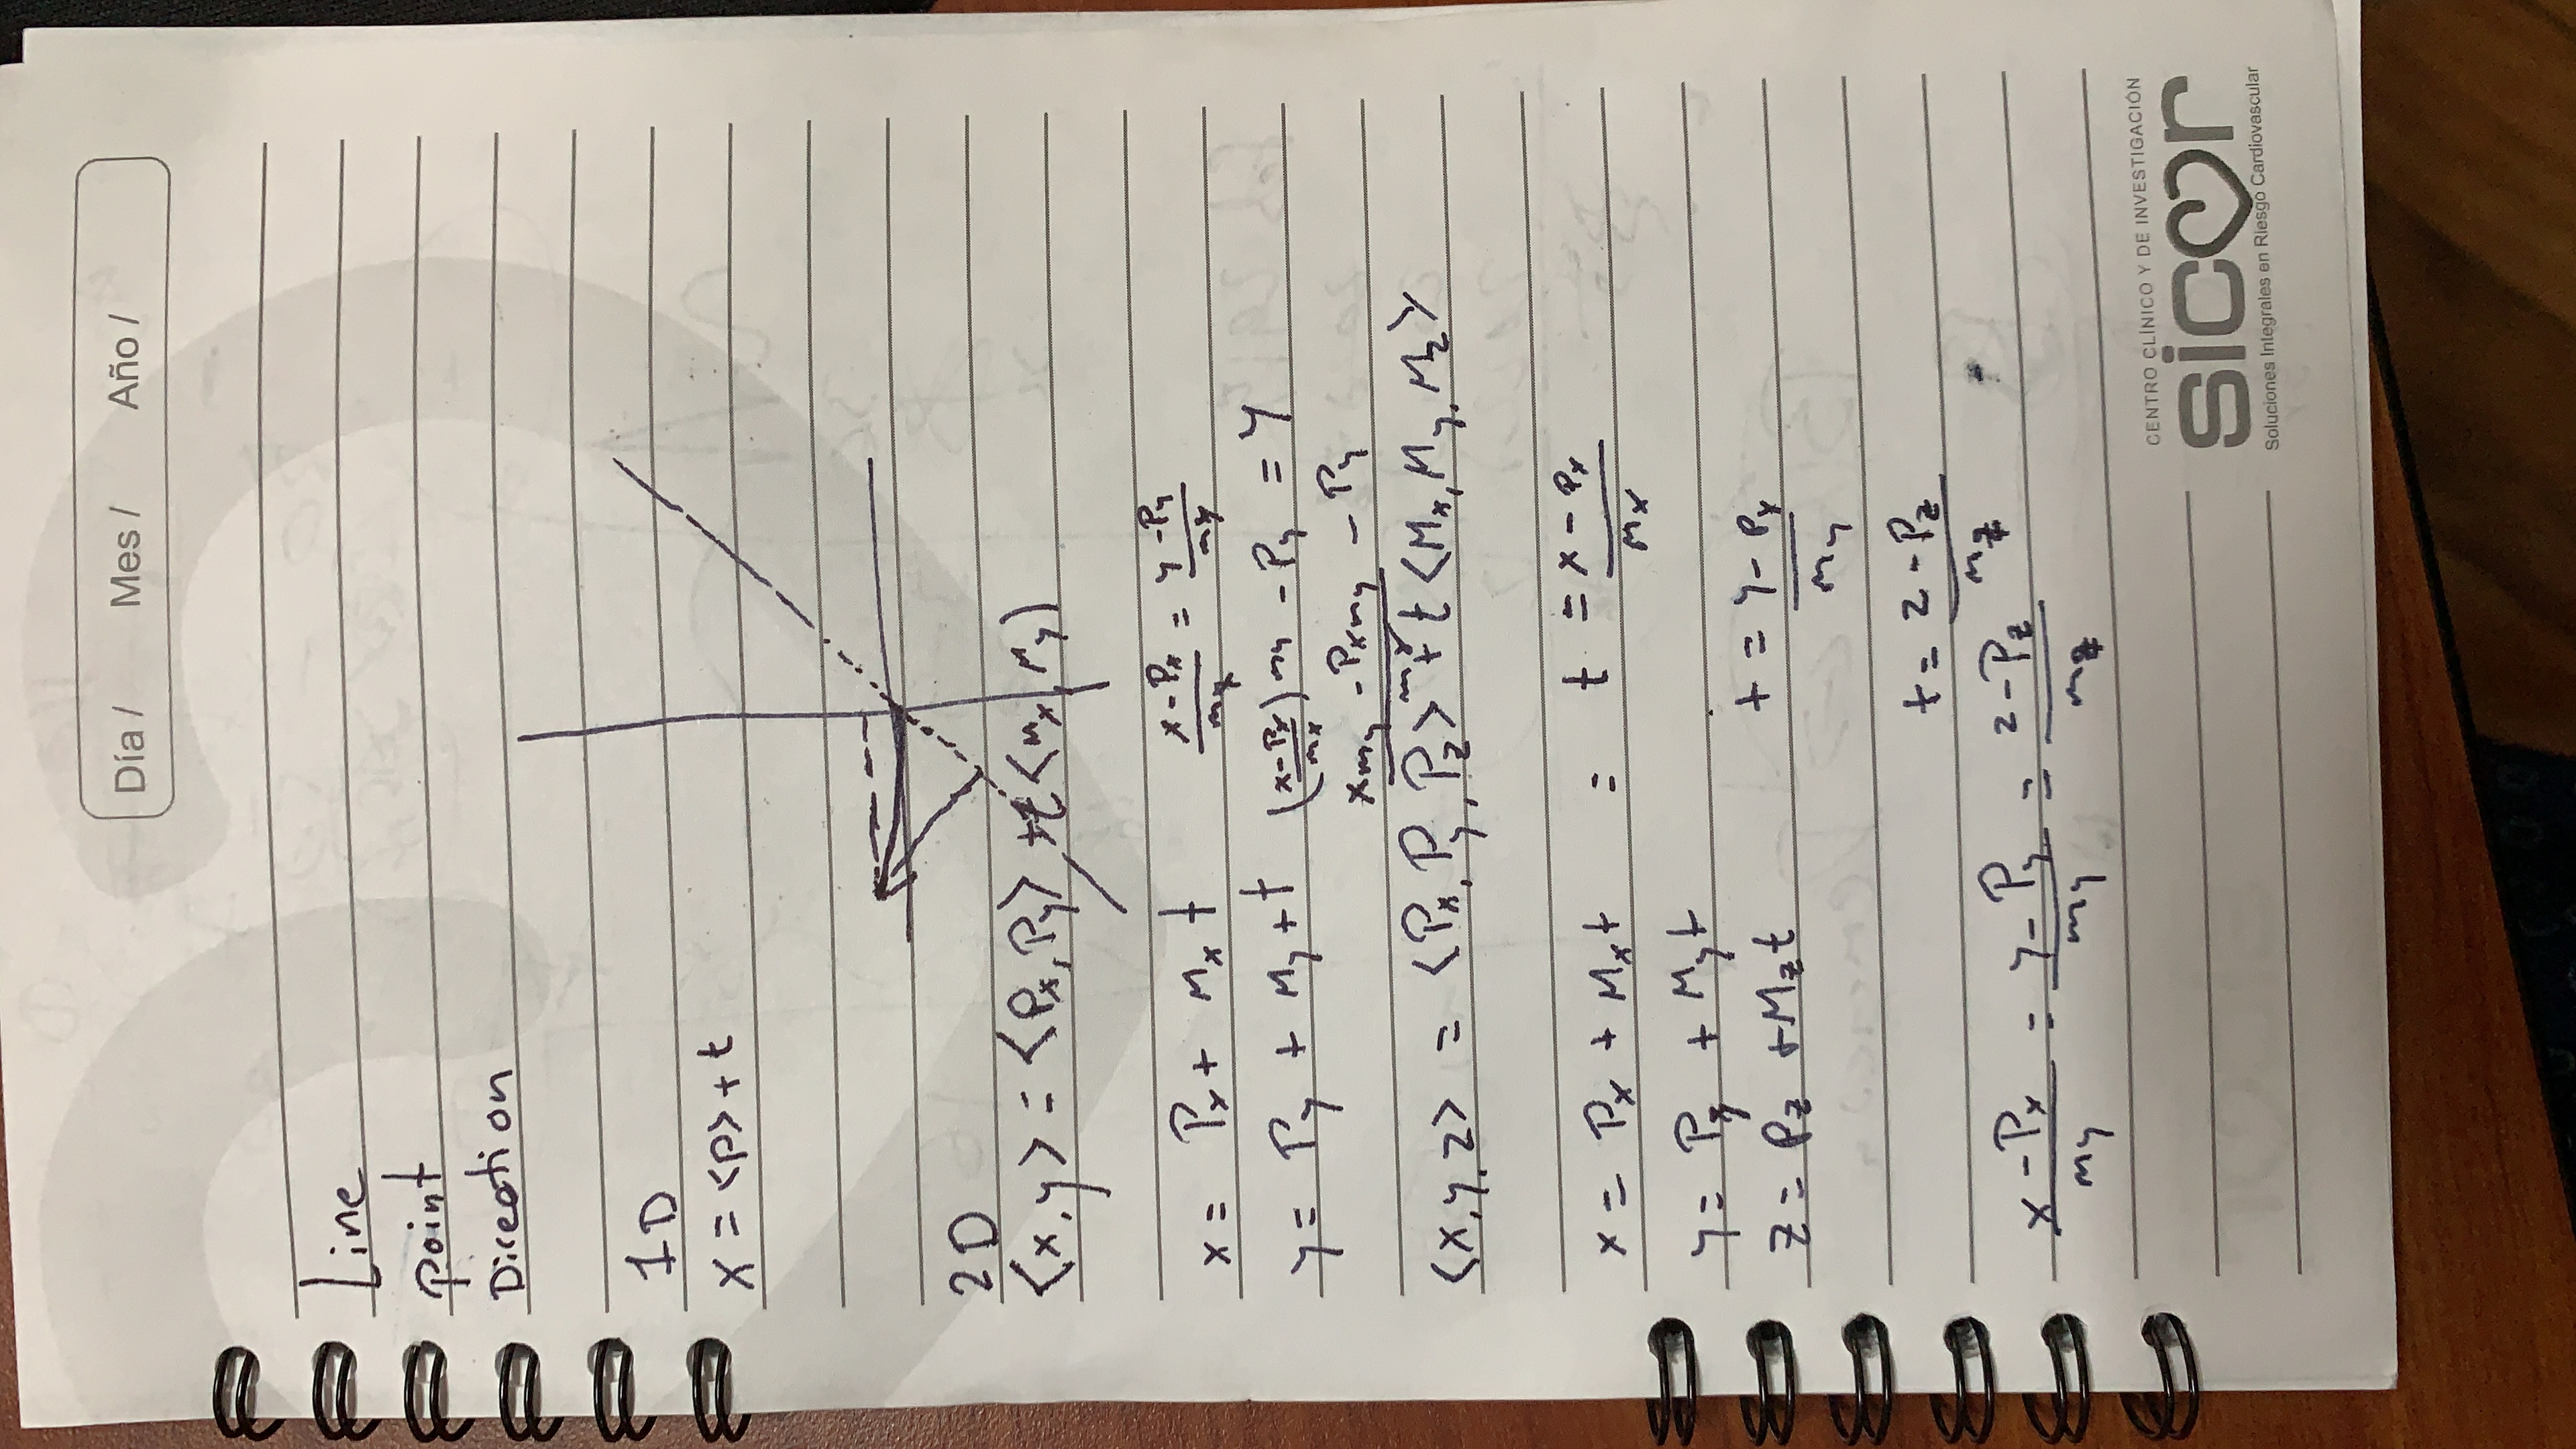 Día / Mes / Año /
Line
point
Direction
1D
x = <p> + t
2D
<x, y> = <Px, Py> + t <Mx, My)
x = Px + Mx t
x - Px / mx = y - Py / my
y = Py + My + t
(x - Px / mx) my - Py = y
xmy - Pxmy / mx - Py
<x, y, z> = <Px, Py, Pz> + t <Mx, My, Mz>
x = Px + Mxt = t = x - Px / Mx
y = Py + Myt
z = Pz + Mzt
t = y - Py / My
t = z - Pz / Mz
x - Px / my = y - Py / my = z - Pz / mz
CENTRO CLÍNICO Y DE INVESTIGACIÓN
sicor
Soluciones Integrales en Riesgo Cardiovascular